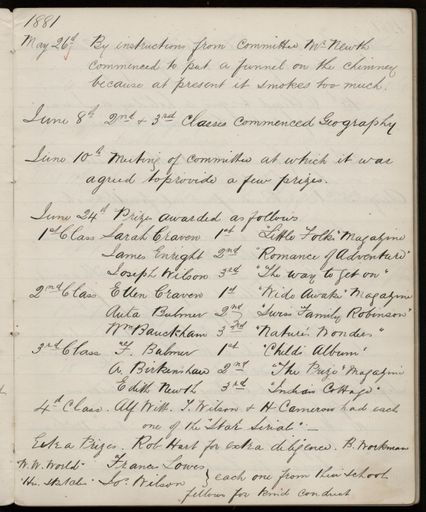 1881
May 26th By instructions from Committee Mr Newth
commenced to put a funnel on the chimney
because at present it smokes too much.
June 8th 2nd & 3rd Classes Commenced Geography
June 10th Meeting of Committee at which it was
agreed to provide a few prizes.
June 24th Prizes awarded as follows
1st Class Sarah Craven 1st "Little Folks" Magazine
James Enright 2nd "Romance of Adventure"
Joseph Wilson 3rd "The way to get on"
2nd Class Ellen Craven 1st "Wide Awake" Magazine
Balmer 2nd "Swiss Family Robinson"
Wm Bauckham 3rd "Nature's Wonders"
3rd Class F. Balmer 1st "Child's Album"
A. Birkinshaw 2nd "The Prize" Magazine
Edith Newth 3rd "Indian Cottage"
4th Class. Alf Witt. T. Wilson & H Cameron had each
one of the "Star Serial" —
Extra Prizes. Rob Hart for extra diligence. B. Workman
"W. W. World" Frances Lowes
Jos. Wilson } each one from their school
fellows for kind conduct